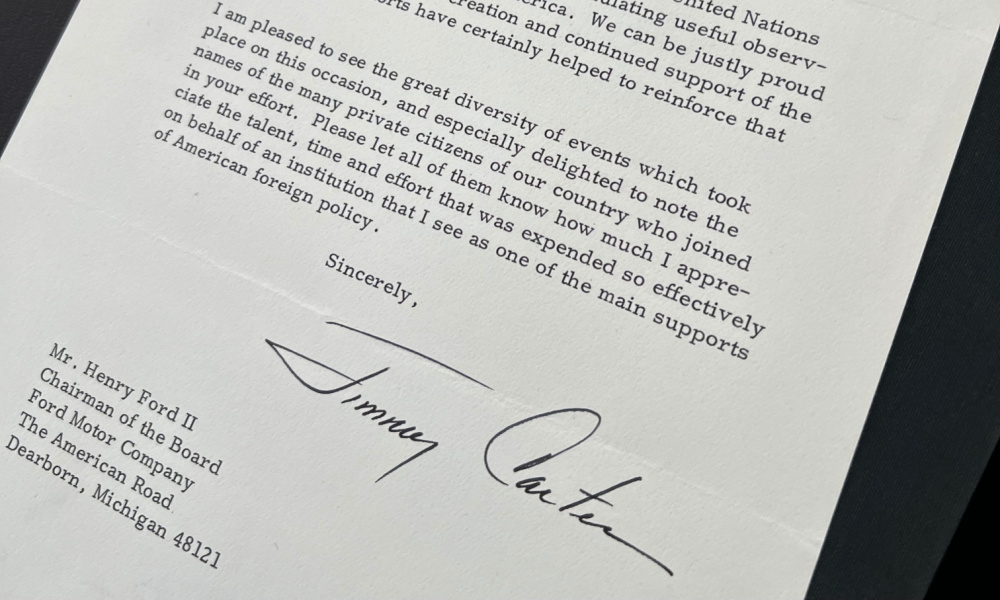 United Nations
ulating useful observ-
erica. We can be justly proud
creation and continued support of the
orts have certainly helped to reinforce that
I am pleased to see the great diversity of events which took
place on this occasion, and especially delighted to note the
names of the many private citizens of our country who joined
in your effort. Please let all of them know how much I appre-
ciate the talent, time and effort that was expended so effectively
on behalf of an institution that I see as one of the main supports
of American foreign policy.
Sincerely,
Jimmy Carter
Mr. Henry Ford II
Chairman of the Board
Ford Motor Company
The American Road
Dearborn, Michigan 48121